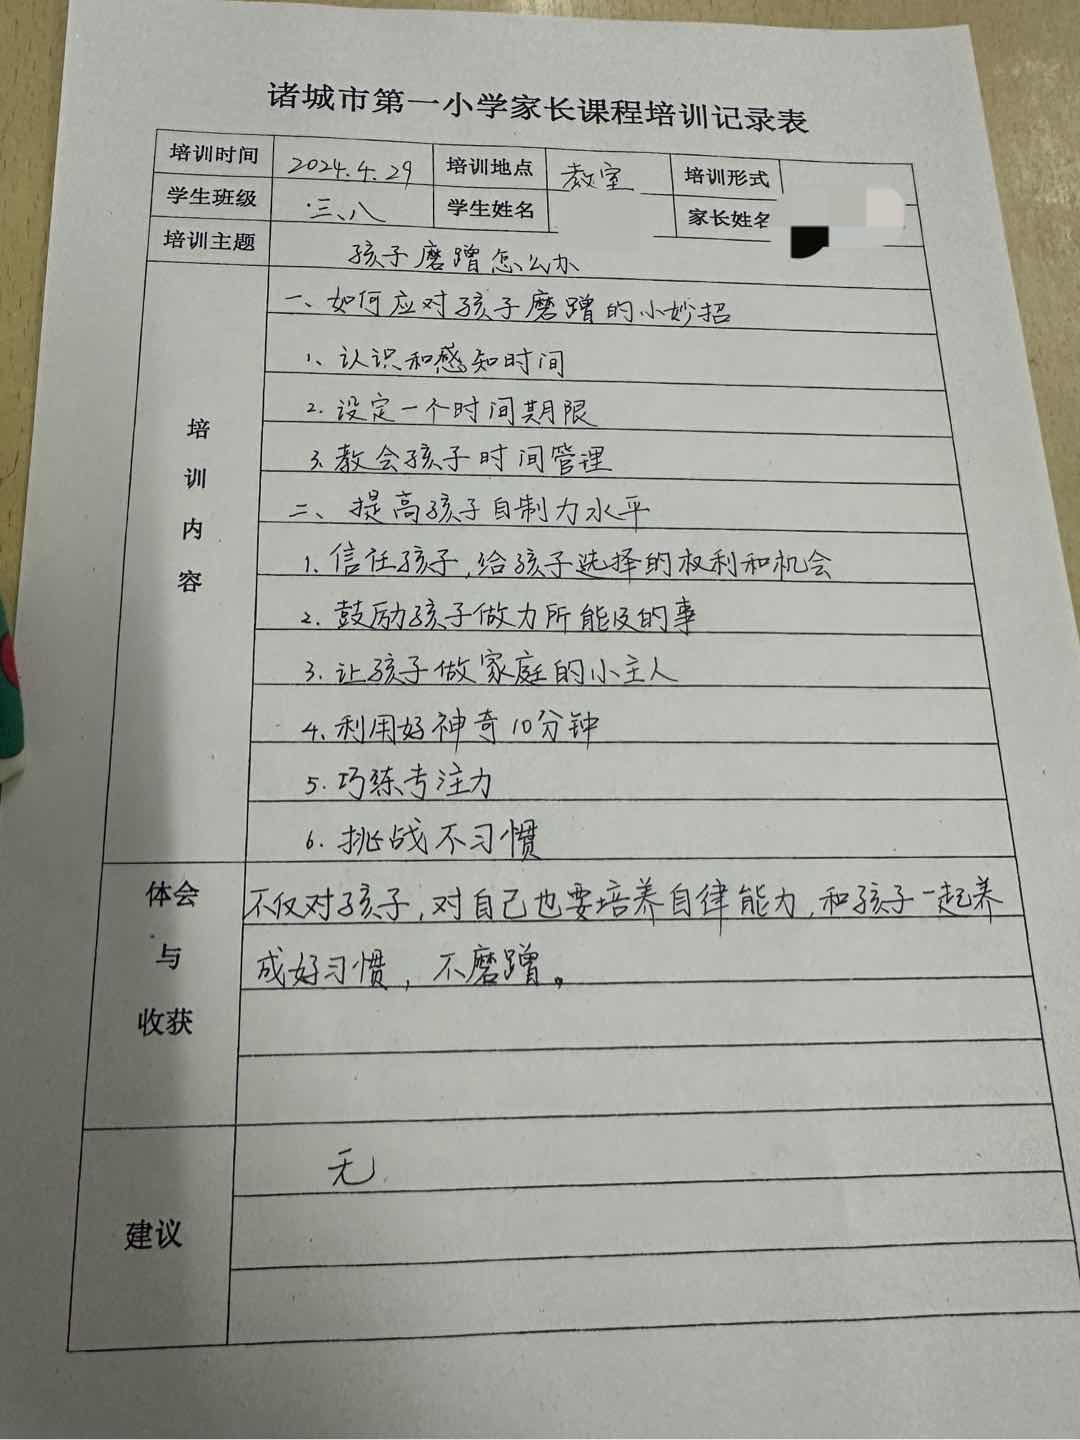 诸城市第一小学家长课程培训记录表
培训时间 2024.4.29 培训地点 教室 培训形式
学生班级 三、八 学生姓名 家长姓名
培训主题 孩子磨蹭怎么办
培训内容
一、如何应对孩子磨蹭的小妙招
1、认识和感知时间
2.设定一个时间期限
3.教会孩子时间管理
二、提高孩子自制力水平
1.信任孩子,给孩子选择的权利和机会
2.鼓励孩子做力所能及的事
3.让孩子做家庭的小主人
4.利用好神奇10分钟
5.巧练专注力
6.挑战不习惯
体会与收获
不仅对孩子,对自己也要培养自律能力,和孩子一起养
成好习惯,不磨蹭。
建议
无